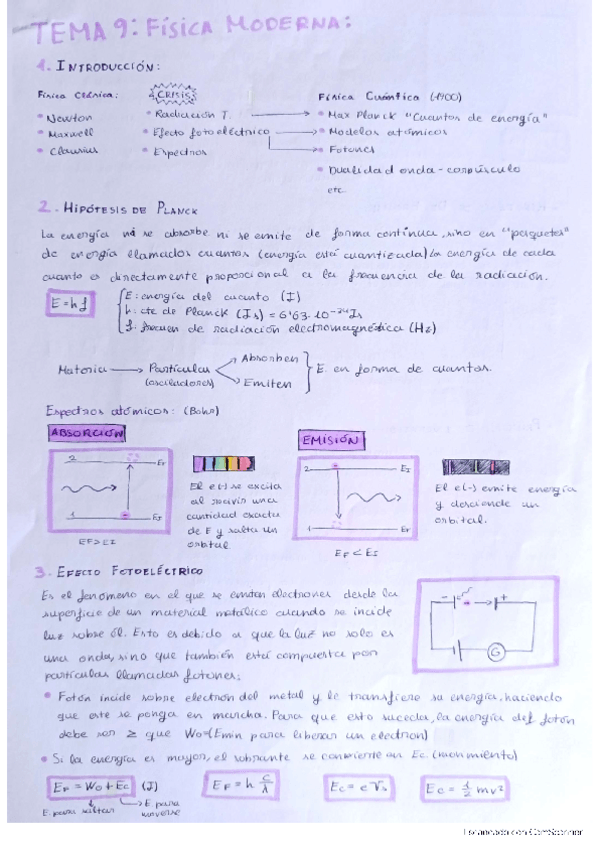 TEMA 9: FÍSICA MODERNA:
1. INTRODUCCIÓN:
Física Clásica: CRISIS Física Cuántica (1900)
• Newton • Radiación T. → • Max Planck "Cuantos de energía"
• Maxwell • Efecto fotoeléctrico → • Modelos atómicos
• Clausius • Espectros • Fotones
• Dualidad onda-corpúsculo
etc.
2. HIPÓTESIS DE PLANCK
La energía ni se absorbe ni se emite de forma continua, sino en "paquetes"
de energía llamados cuantos (energía está cuantizada) La energía de cada
cuanto es directamente proporcional a la frecuencia de la radiación.
E = hf
E: energía del cuanto (J)
h: cte de Planck (Js) = 6'63·10⁻³⁴ Js
f: frecuen de radiación electromagnética (Hz)
Materia → Partículas Absorben
(osciladores) Emiten
E. en forma de cuantos.
Espectros atómicos: (Bohr)
ABSORCIÓN
2 EF
1 EI
EF > EI
El e(-) se excita
al recivir una
cantidad exacta
de E y salta un
orbital.
EMISIÓN
2 EI
1 EF
EF < EI
El e(-) emite energía
y desciende un
orbital.
3. EFECTO FOTOELÉCTRICO
Es el fenómeno en el que se emiten electrones desde la
superficie de un material metálico cuando se incide
luz sobre él. Esto es debido a que la luz no solo es
una onda, sino que también está compuesta por
partículas llamadas fotones:
- +
G
• Fotón incide sobre electrón del metal y le transfiere su energía, haciendo
que este se ponga en marcha. Para que esto suceda, la energía del fotón
debe ser ≥ que W0=(Emin para liberar un electrón)
• Si la energía es mayor, el sobrante se convierte en Ec. (movimiento)
EF = W0 + Ec (J)
E para saltar
E para
moverse
EF = h c/λ
Ec = e Vs
Ec = 1/2 mv²
Escaneado con CamScanner